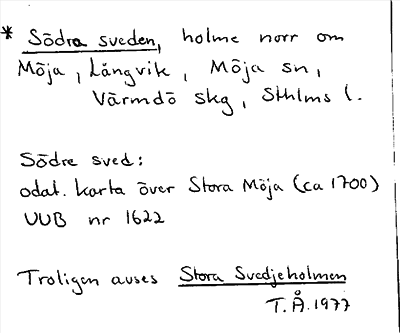 * Södra sveden, holme norr om
Möja, Långvik, Möja sn,
Värmdö skg, Sthlms l.
Södre sved:
odat. karta över Stora Möja (ca 1700)
UUB nr 1622
Troligen avses Stora Svedjeholmen
T.Å. 1977